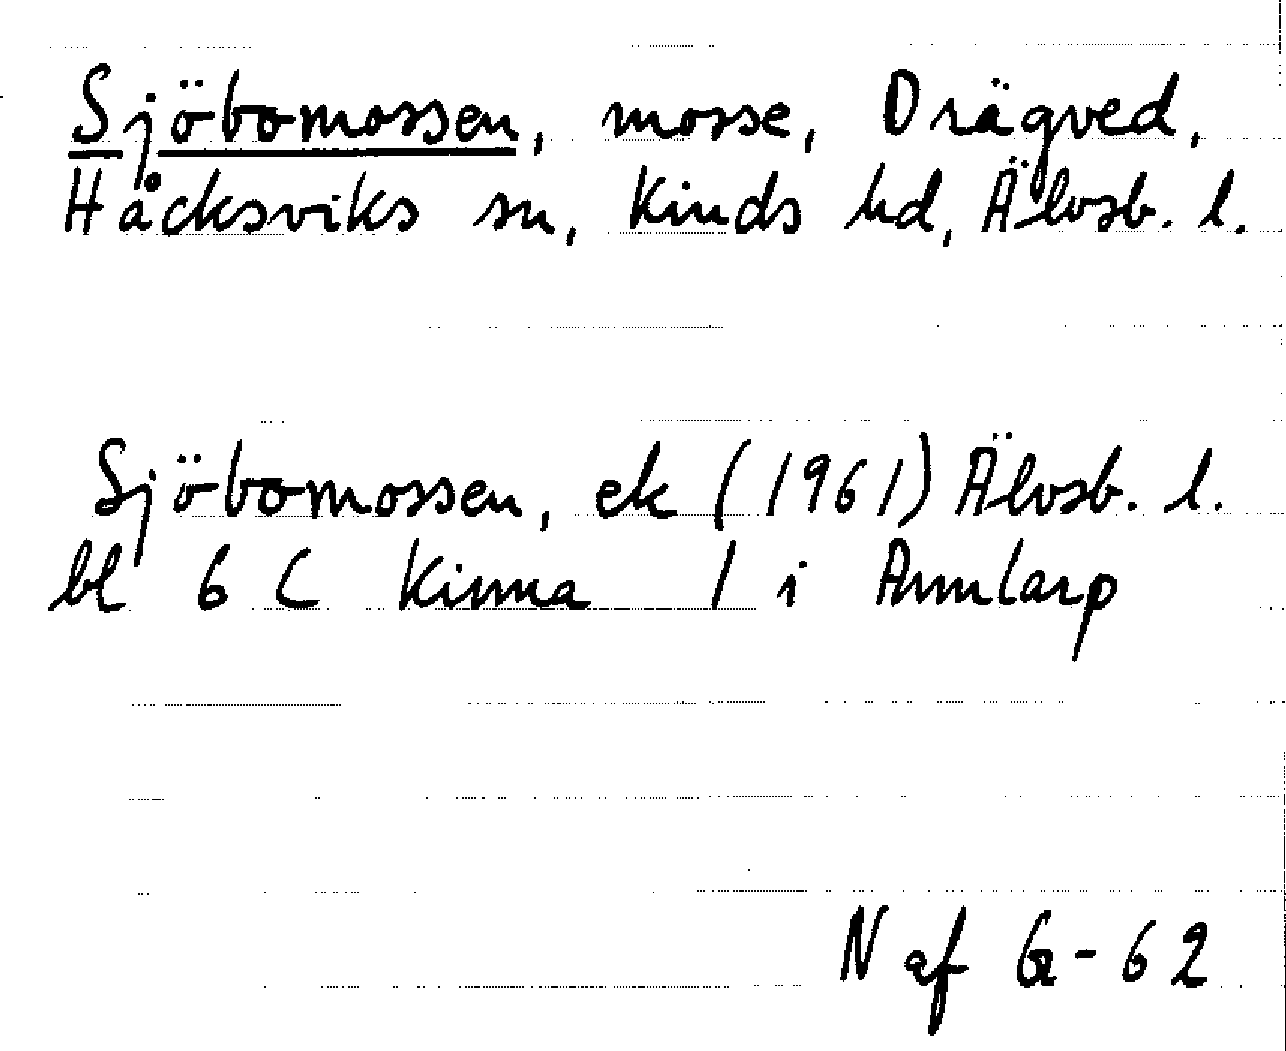 Sjöbomossen, mosse, Drägved,
Håcksviks sn, Kinds hd, Älvsb. l.
Sjöbomossen, ek (1961) Älvsb. l.
bl 6 C Kinna 1 i Annlarp
N af G-62